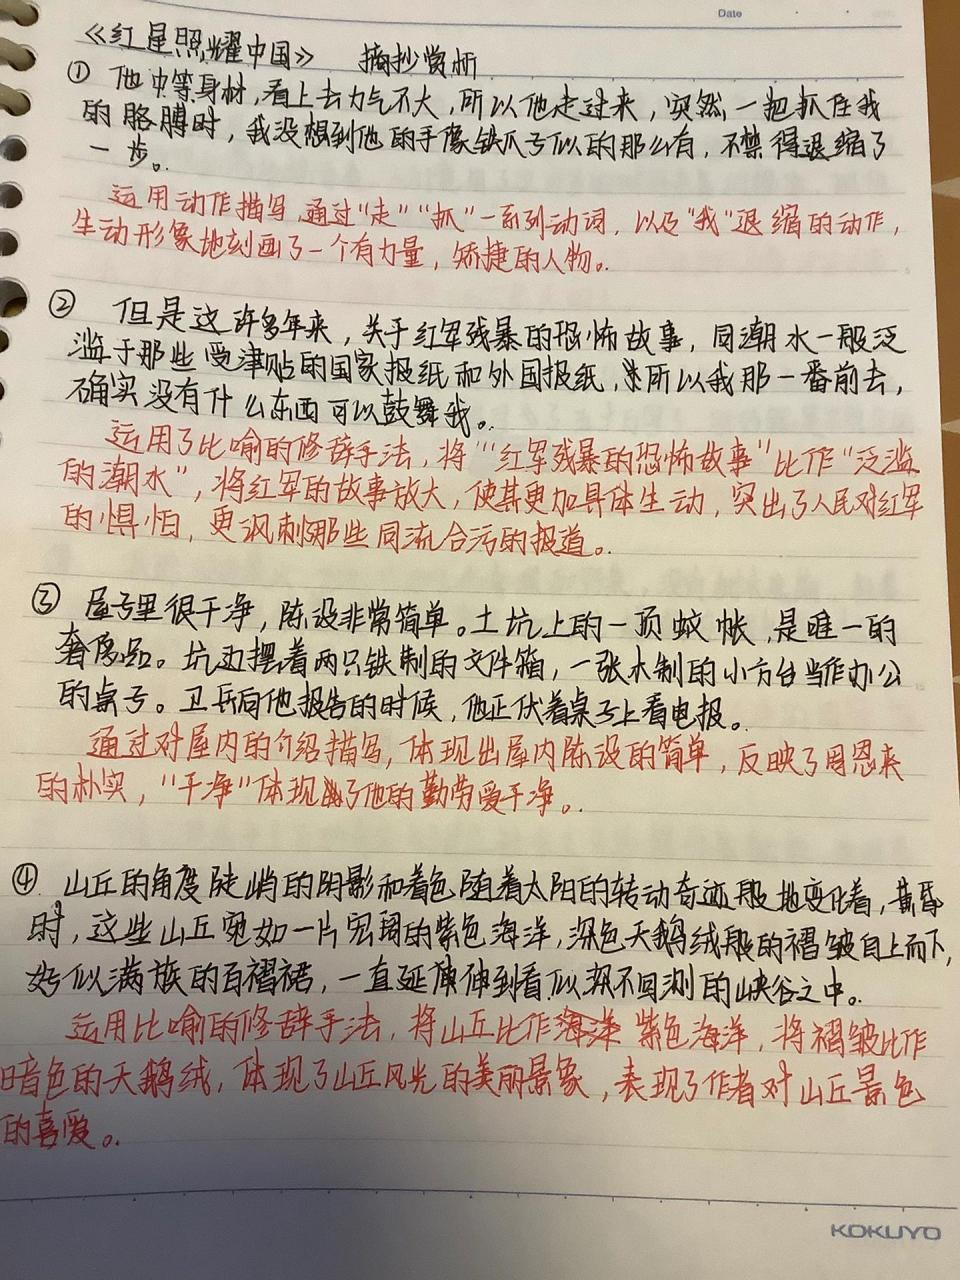 Date
《红星照耀中国》 摘抄赏析
① 他中等身材，看上去力气不大，所以他走过来，突然一把抓住我
的胳膊时，我没想到他的手像铁爪子似的那么有，不禁得退缩了
一步。
运用动作描写，通过“走”“抓”一系列动词，以及“我”退缩的动作，
生动形象地刻画了一个有力量，矫捷的人物。
② 但是这许多年来，关于红军残暴的恐怖故事，同潮水一般泛
滥于那些受津贴的国家报纸和外国报纸，所以我那一番前去，
确实没有什么东西可以鼓舞我。
运用了比喻的修辞手法，将“红军残暴的恐怖故事”比作“泛滥
的潮水”，将红军的故事放大，使其更加具体生动，突出了人民对红军
的惧怕，更讽刺那些同流合污的报道。
③ 屋子里很干净，陈设非常简单。土坑上的一顶蚊帐，是唯一的
奢侈品。坑边摆着两只铁制的文件箱，一张木制的小方台当作办公
的桌子。卫兵向他报告的时候，他正伏着桌子上看电报。
通过对屋内的介绍描写，体现出屋内陈设的简单，反映了周恩来
的朴实，“干净”体现了他的勤劳爱干净。
④ 山丘的角度陡峭的阴影和着色随着太阳的转动奇迹般地变化着，黄昏
时，这些山丘宛如一片宏阔的紫色海洋，深色天鹅绒般的褶皱自上而下，
好似满族的百褶裙，一直延伸伸到看似深不可测的峡谷之中。
运用比喻的修辞手法，将山丘比作紫色海洋，将褶皱比作
暗色的天鹅绒，体现了山丘风光的美丽景象，表现了作者对山丘景色
的喜爱。
KOKUYO